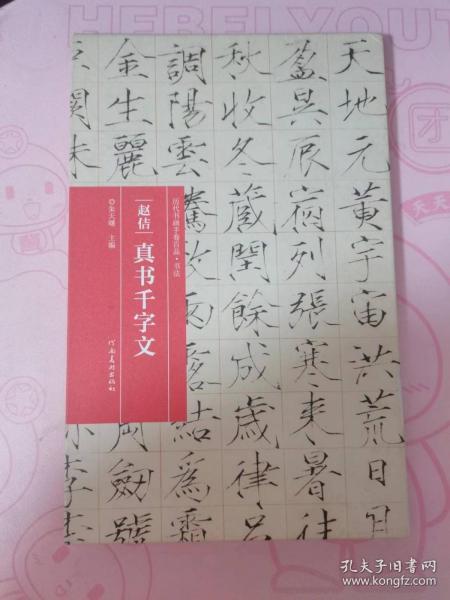 天地元黄宇宙洪荒日月
盈昃辰宿列張寒来暑往
秋收冬藏閏餘成歲律吕
調陽雲騰致雨露結爲霜
金生麗
岡劒號
闕珠
李柰
历代书画手卷百品·书法
赵佶
真书千字文
◎朱天曙 主编
河南美术出版社
团
天天
孔夫子旧书网
www.kongfz.com